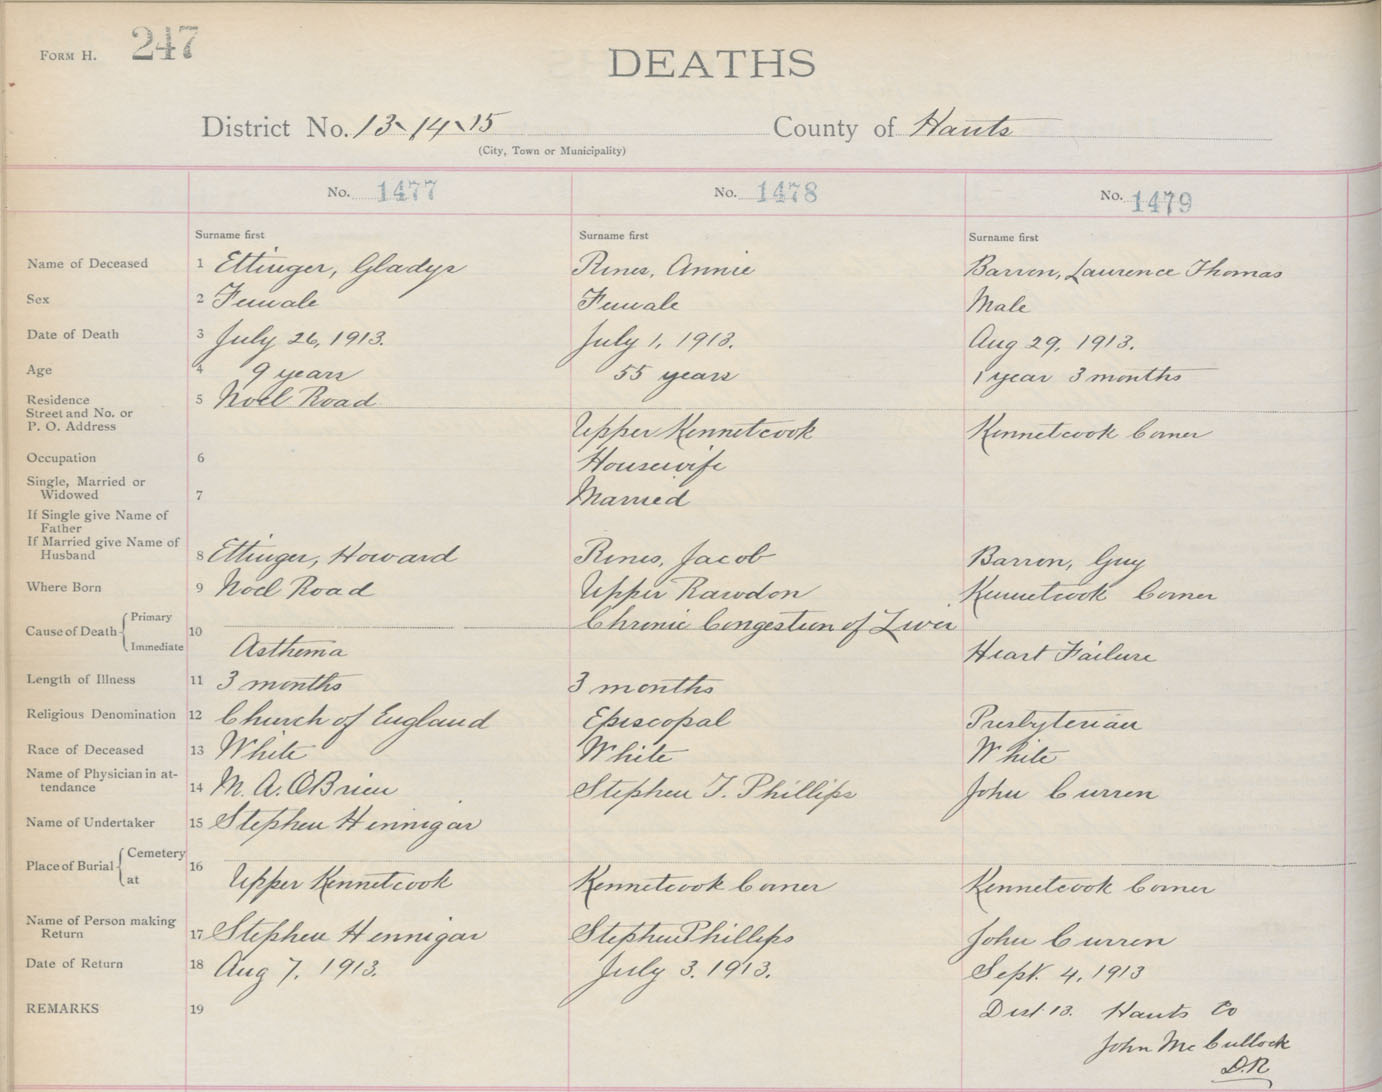 FORM H. 247
DEATHS
District No. 13-14-15 County of Hants
(City, Town or Municipality)
No. 1477 No. 1478 No. 1479
Surname first Surname first Surname first
Name of Deceased 1 Ettinger, Gladys Rines, Annie Barron, Laurence Thomas
Sex 2 Female Female Male
Date of Death 3 July 26, 1913. July 1, 1913. Aug 29, 1913.
Age 4 9 years 55 years 1 year 3 months
Residence 5 Noel Road
Street and No. or
P. O. Address Upper Kennetcook Kennetcook Corner
Occupation 6 Housewife
Single, Married or
Widowed 7 Married
If Single give Name of
Father
If Married give Name of
Husband 8 Ettinger, Howard Rines, Jacob Barron, Guy
Where Born 9 Noel Road Upper Rawdon Kennetcook Corner
Cause of Death Primary 10 Chronic Congestion of Liver
Immediate Asthema Heart Failure
Length of Illness 11 3 months 3 months
Religious Denomination 12 Church of England Episcopal Presbyterian
Race of Deceased 13 White White White
Name of Physician in at-
tendance 14 M. A. O'Brien Stephen T. Phillips John Curren
Name of Undertaker 15 Stephen Hennigar
Place of Burial Cemetery 16
at Upper Kennetcook Kennetcook Corner Kennetcook Corner
Name of Person making
Return 17 Stephen Hennigar Stephen Phillips John Curren
Date of Return 18 Aug 7, 1913. July 3. 1913. Sept. 4, 1913
REMARKS 19 Dist 13. Hants Co
John McCullock
D.R